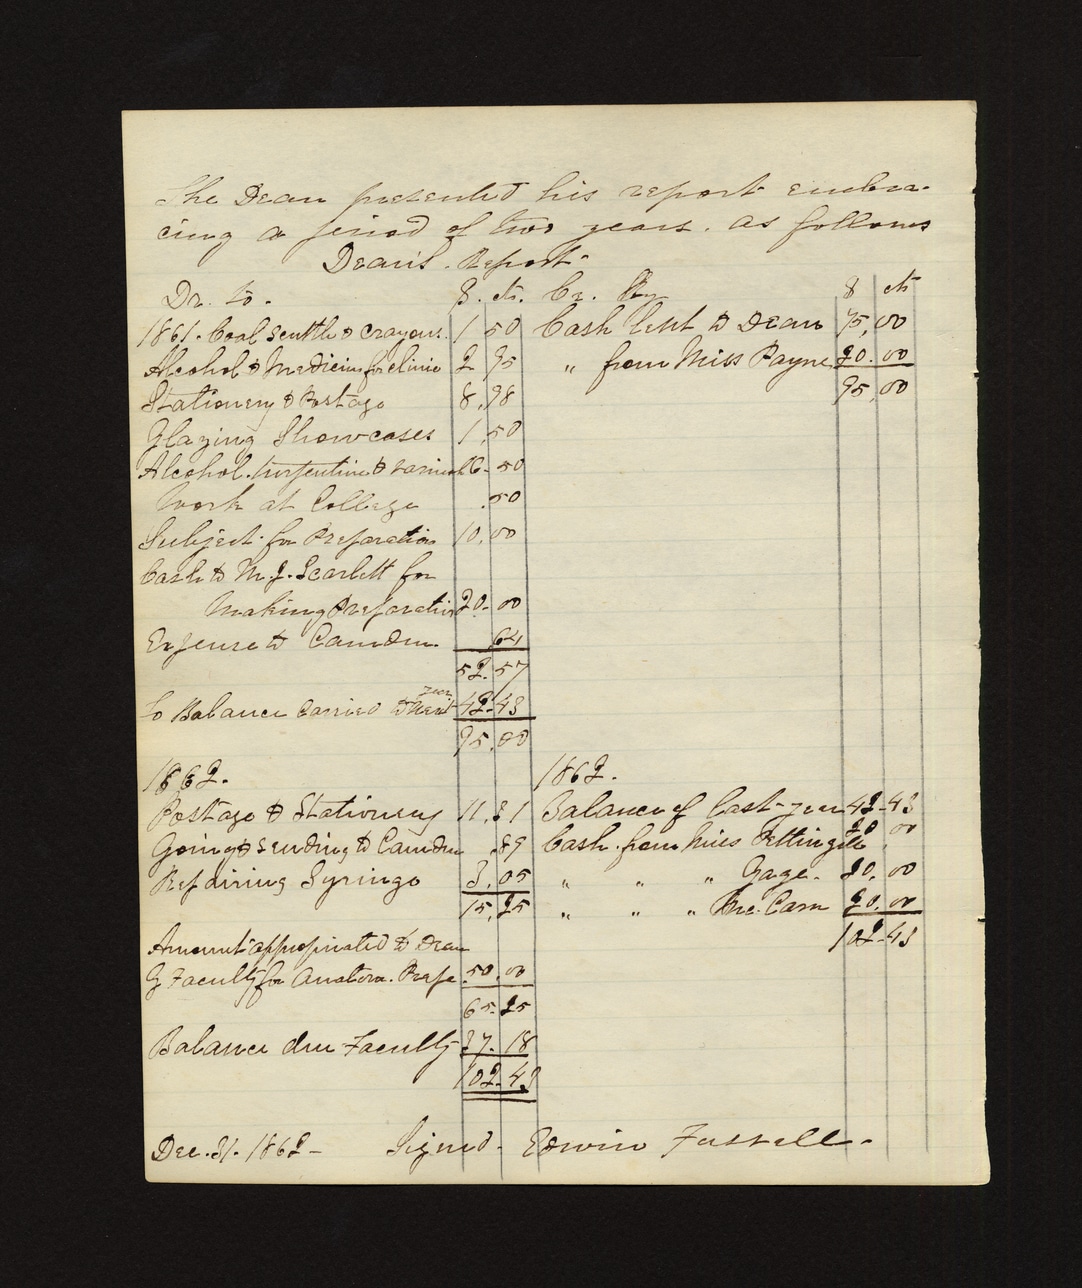 The Dean presented his report embra-
cing a period of two years. as follows
Dean's. Report-
Dr. to. $. cts. Cr. By $ cts
1861. Coal scuttle & Crayons. 1 50 Cash left to Dean 75,00
Alcohol & Medicine for clinic 2 95 " from Miss Payne 20.00
95,00
Stationery & Postage 8,98
Glazing Showcases 1,50
Alcohol. turpentine & varnish 6-50
Work at College .50
Subject for Preparation 10,00
Cash to M. J. Scarlett for
Making Preparation 20-00
Expense to Camden. 64
52.57
To Balance carried to Next year 42-43
95,00
1862. 1862.
Postage & Stationery 11,31 Balance of Last-year 42-43
Going & sending to Camden ,89 Cash. from Miss Pettingill 20,00
Repairing Syringe 3,05 " " " Gage. 20,00
15,25 " " " Mc.Carn 20,00
102-43
Amount appropriated to Dean
by Faculty for Anatom. Prepa 50,00
65-25
Balance due Faculty 37-18
102-43
Dec. 31. 1862- Signed- Edwin Fussell-